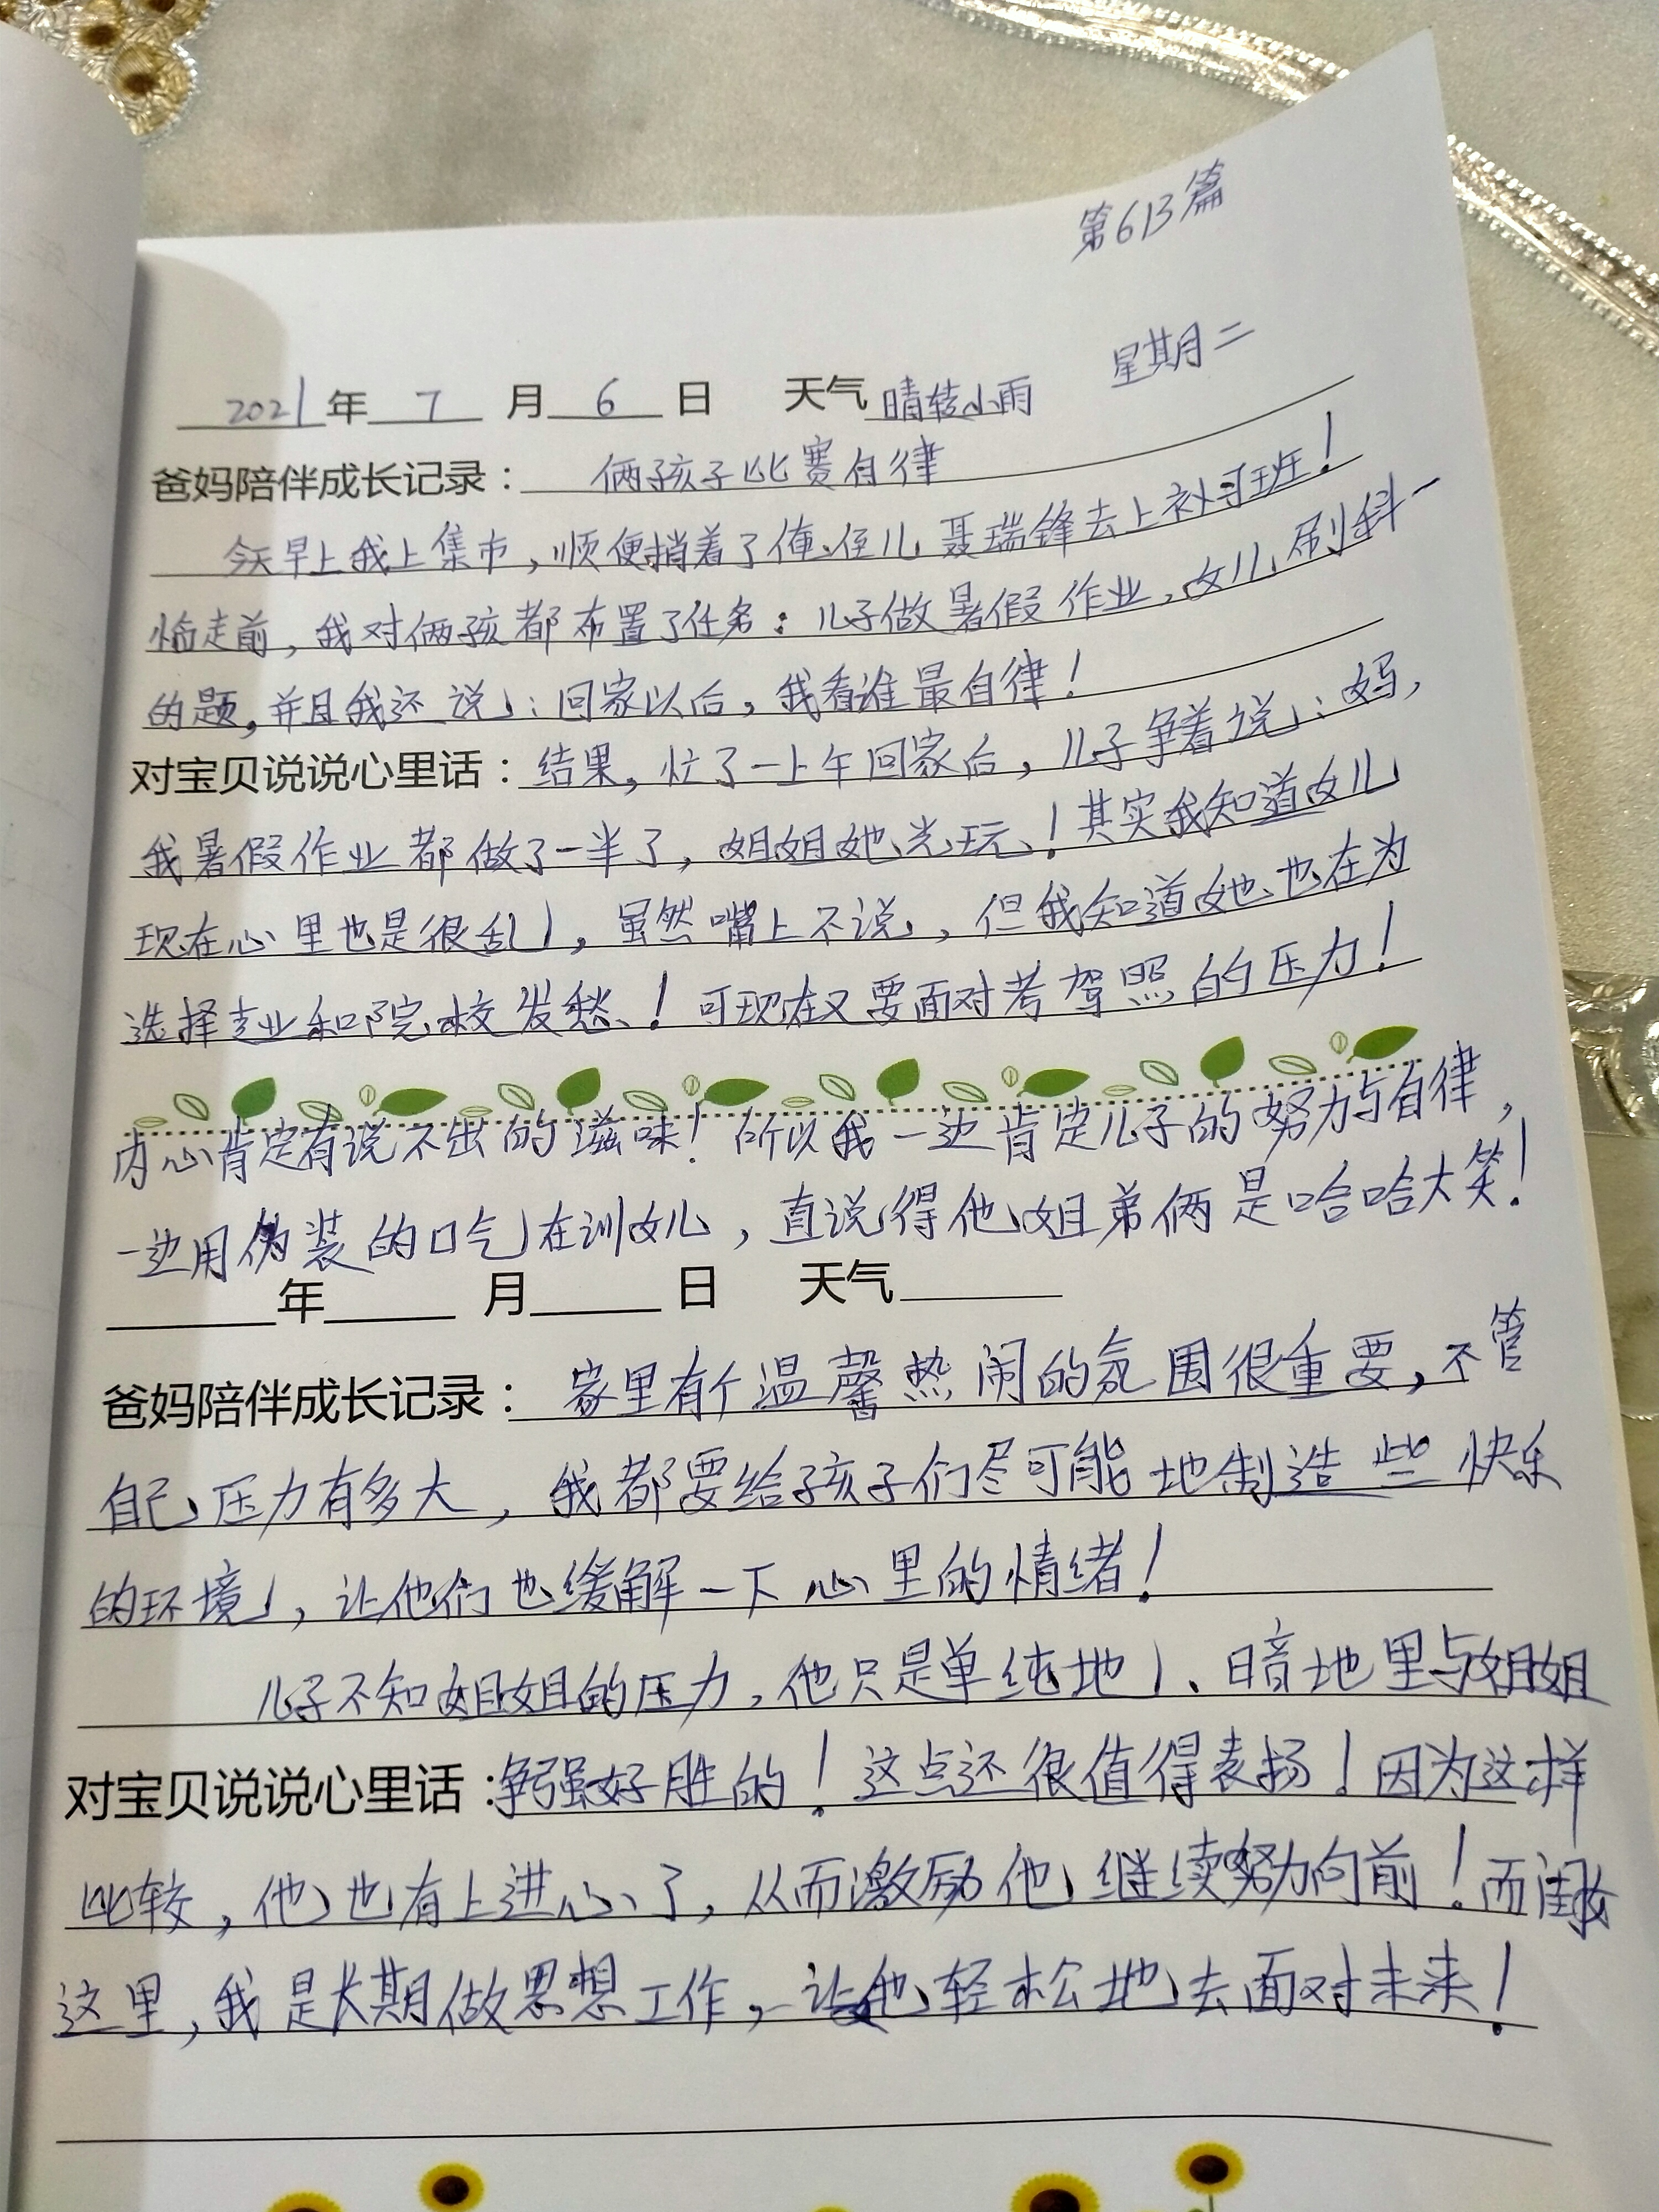 第613篇
星期二
2021年 7 月 6 日 天气 晴转小雨
爸妈陪伴成长记录: 俩孩子比赛自律
今天早上我上集市,顺便捎着了俺侄儿聂瑞锋去上补习班!
临走前,我对俩孩都布置了任务:儿子做暑假作业,女儿刷科一
的题,并且我还说:回家以后,我看谁最自律!
对宝贝说说心里话: 结果,忙了一上午回家后,儿子争着说:妈,
我暑假作业都做了一半了,姐姐她光玩!其实我知道女儿
现在心里也是很乱,虽然嘴上不说,但我知道她也在为
选择专业和院校发愁!可现在又要面对考驾照的压力!
内心肯定有说不出的滋味!所以我一边肯定儿子的努力与自律,
一边用伪装的口气在训女儿,直说得他姐弟俩是哈哈大笑!
年 月 日 天气
爸妈陪伴成长记录: 家里有个温馨热闹的氛围很重要,不管
自己压力有多大,我都要给孩子们尽可能地制造些快乐
的环境,让他们也缓解一下心里的情绪!
儿子不知姐姐的压力,他只是单纯地、暗地里与姐姐
对宝贝说说心里话: 争强好胜的!这点还很值得表扬!因为这样
比较,他也有上进心了,从而激励他继续努力向前!而闺女
这里,我是长期做思想工作,让她轻松地去面对未来!